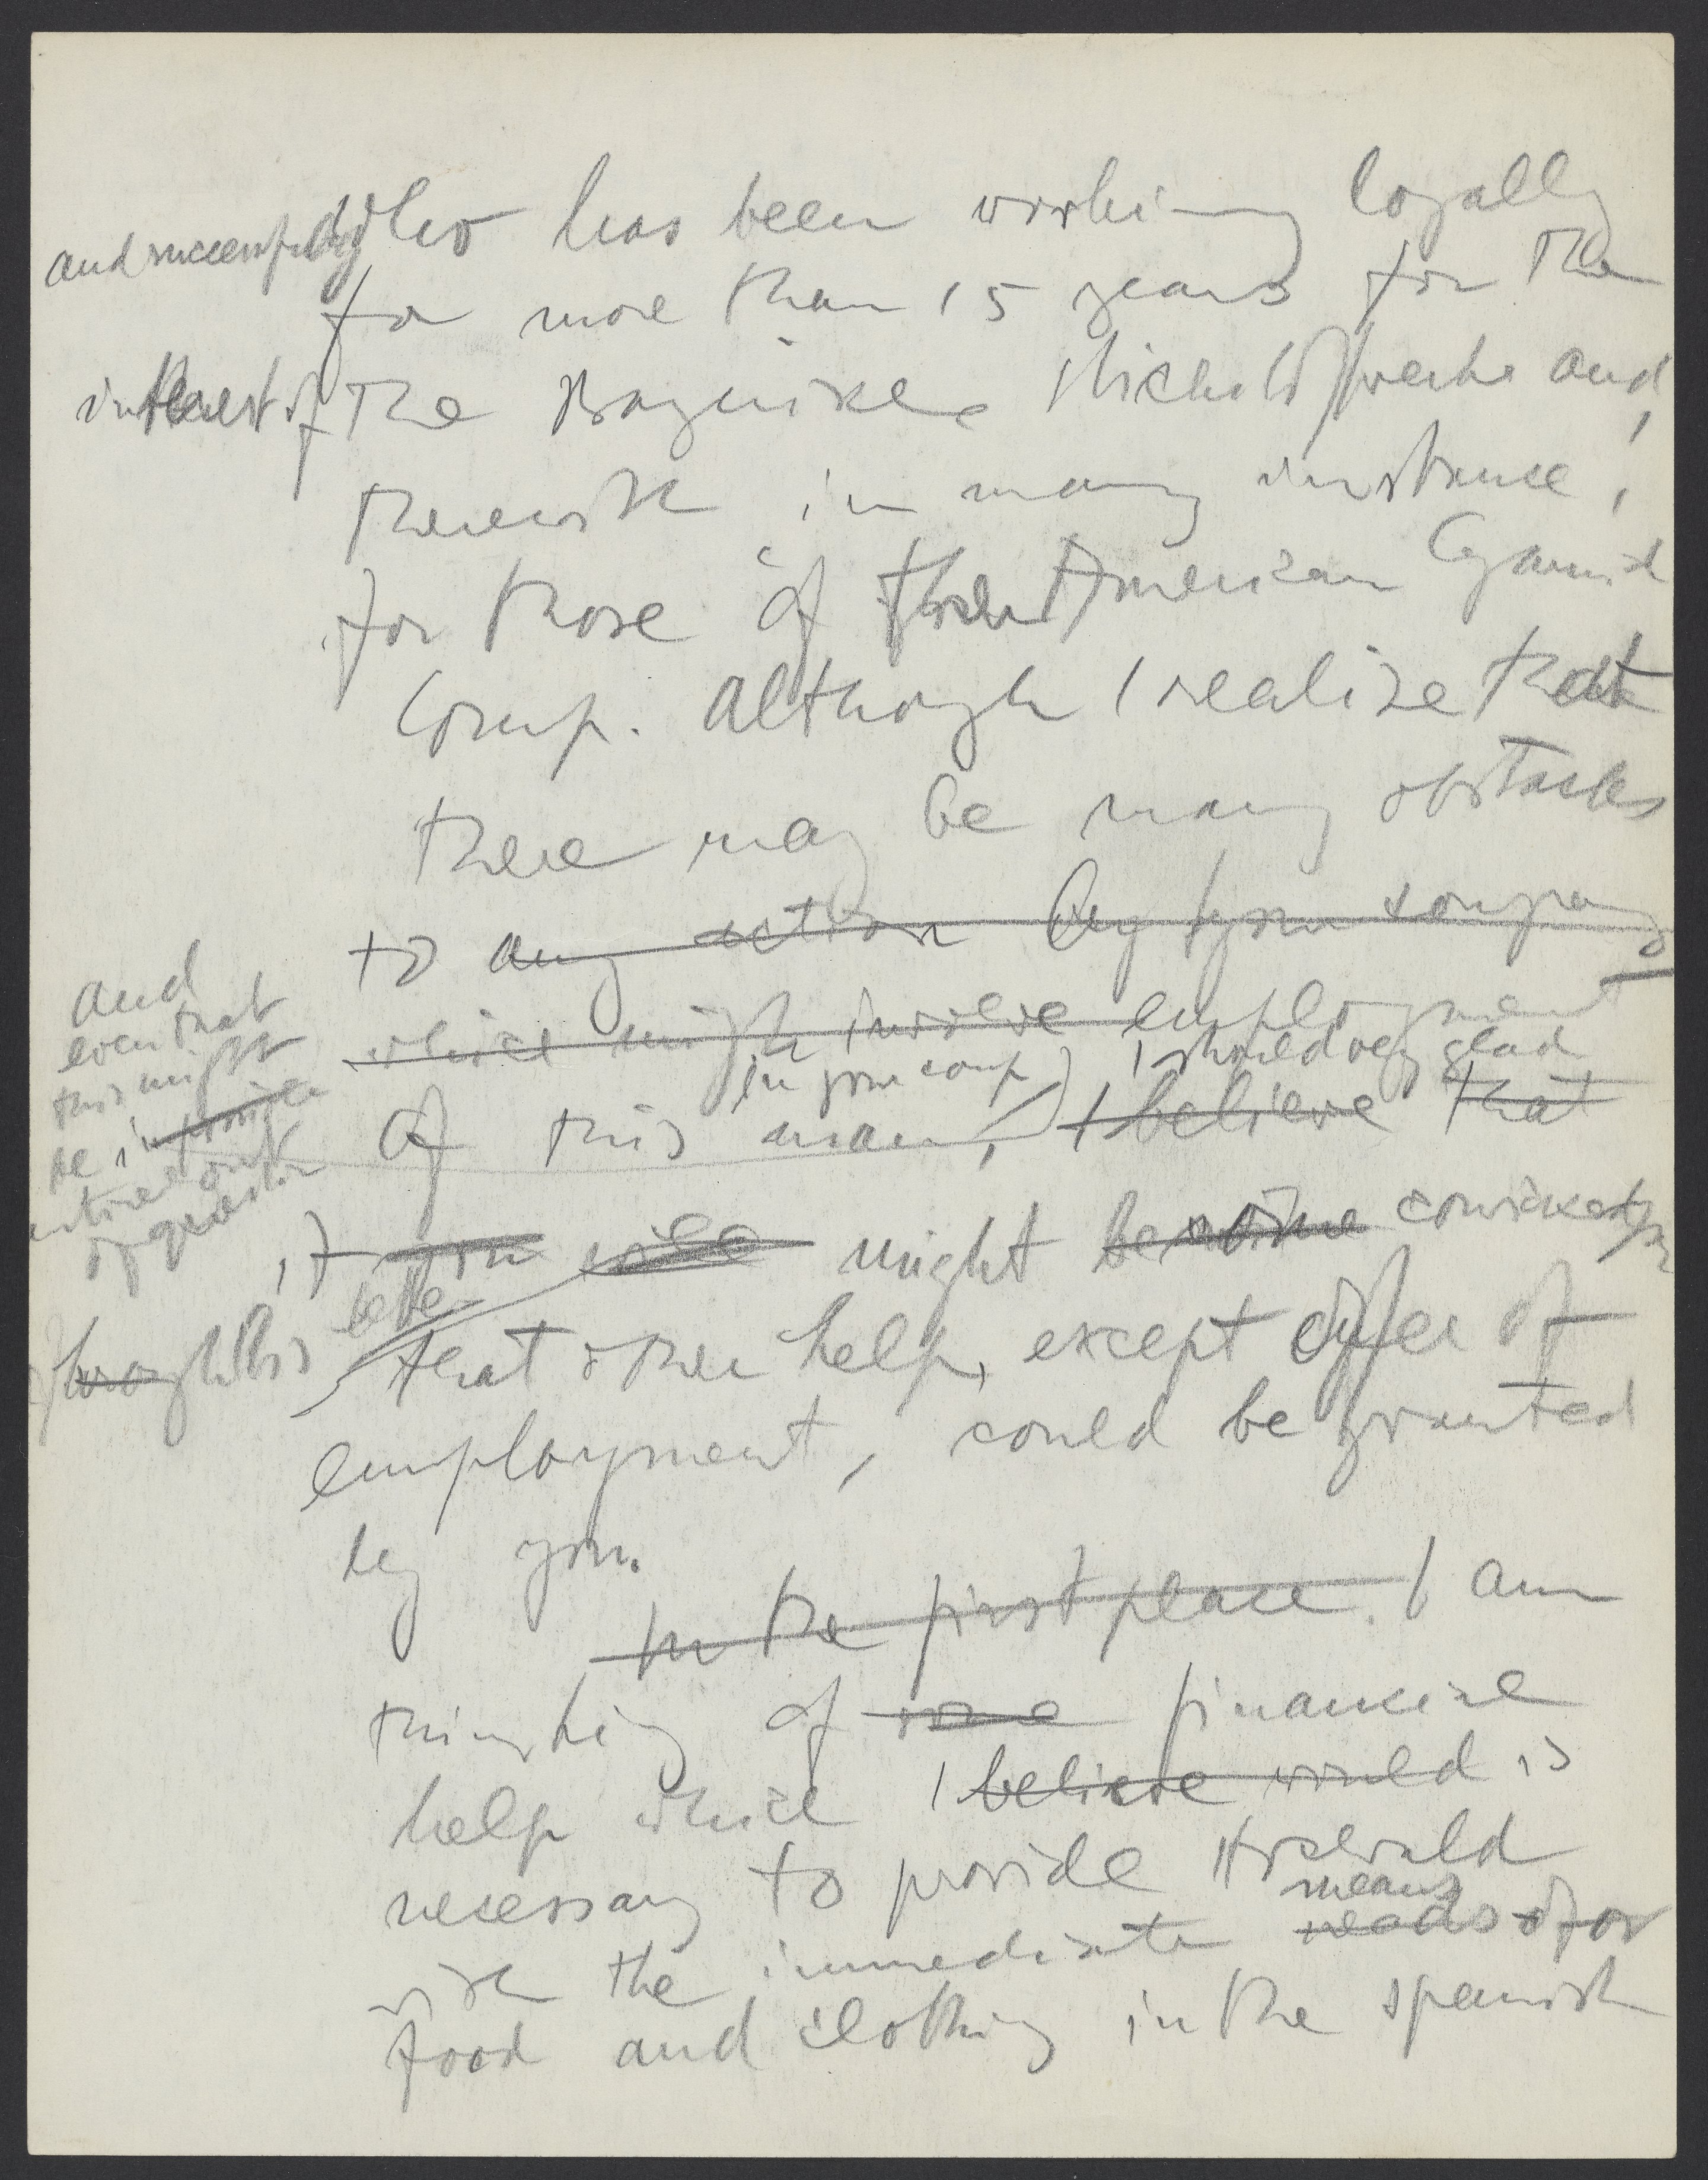 and successfully who has been working loyally
for more than 15 years for the
interest of the Stickstoffwerke and,
therewith in many instance,
for those of the American Cyanid
Comp. Although I realize that
there may be many obstacles
to any action by your company
which might involve employment
and
even that
this might
be impossible
entirely out
of question
in your comp) I should very glad
of this man, I believe that
if you will might become convinced
through this better
that other help, except offer of
employment, could be granted
by you.
In the first place. I am
thinking of some financial
help which I believe would is
necessary to provide
means
with the immediate needs of for
food and clothing in the spanish